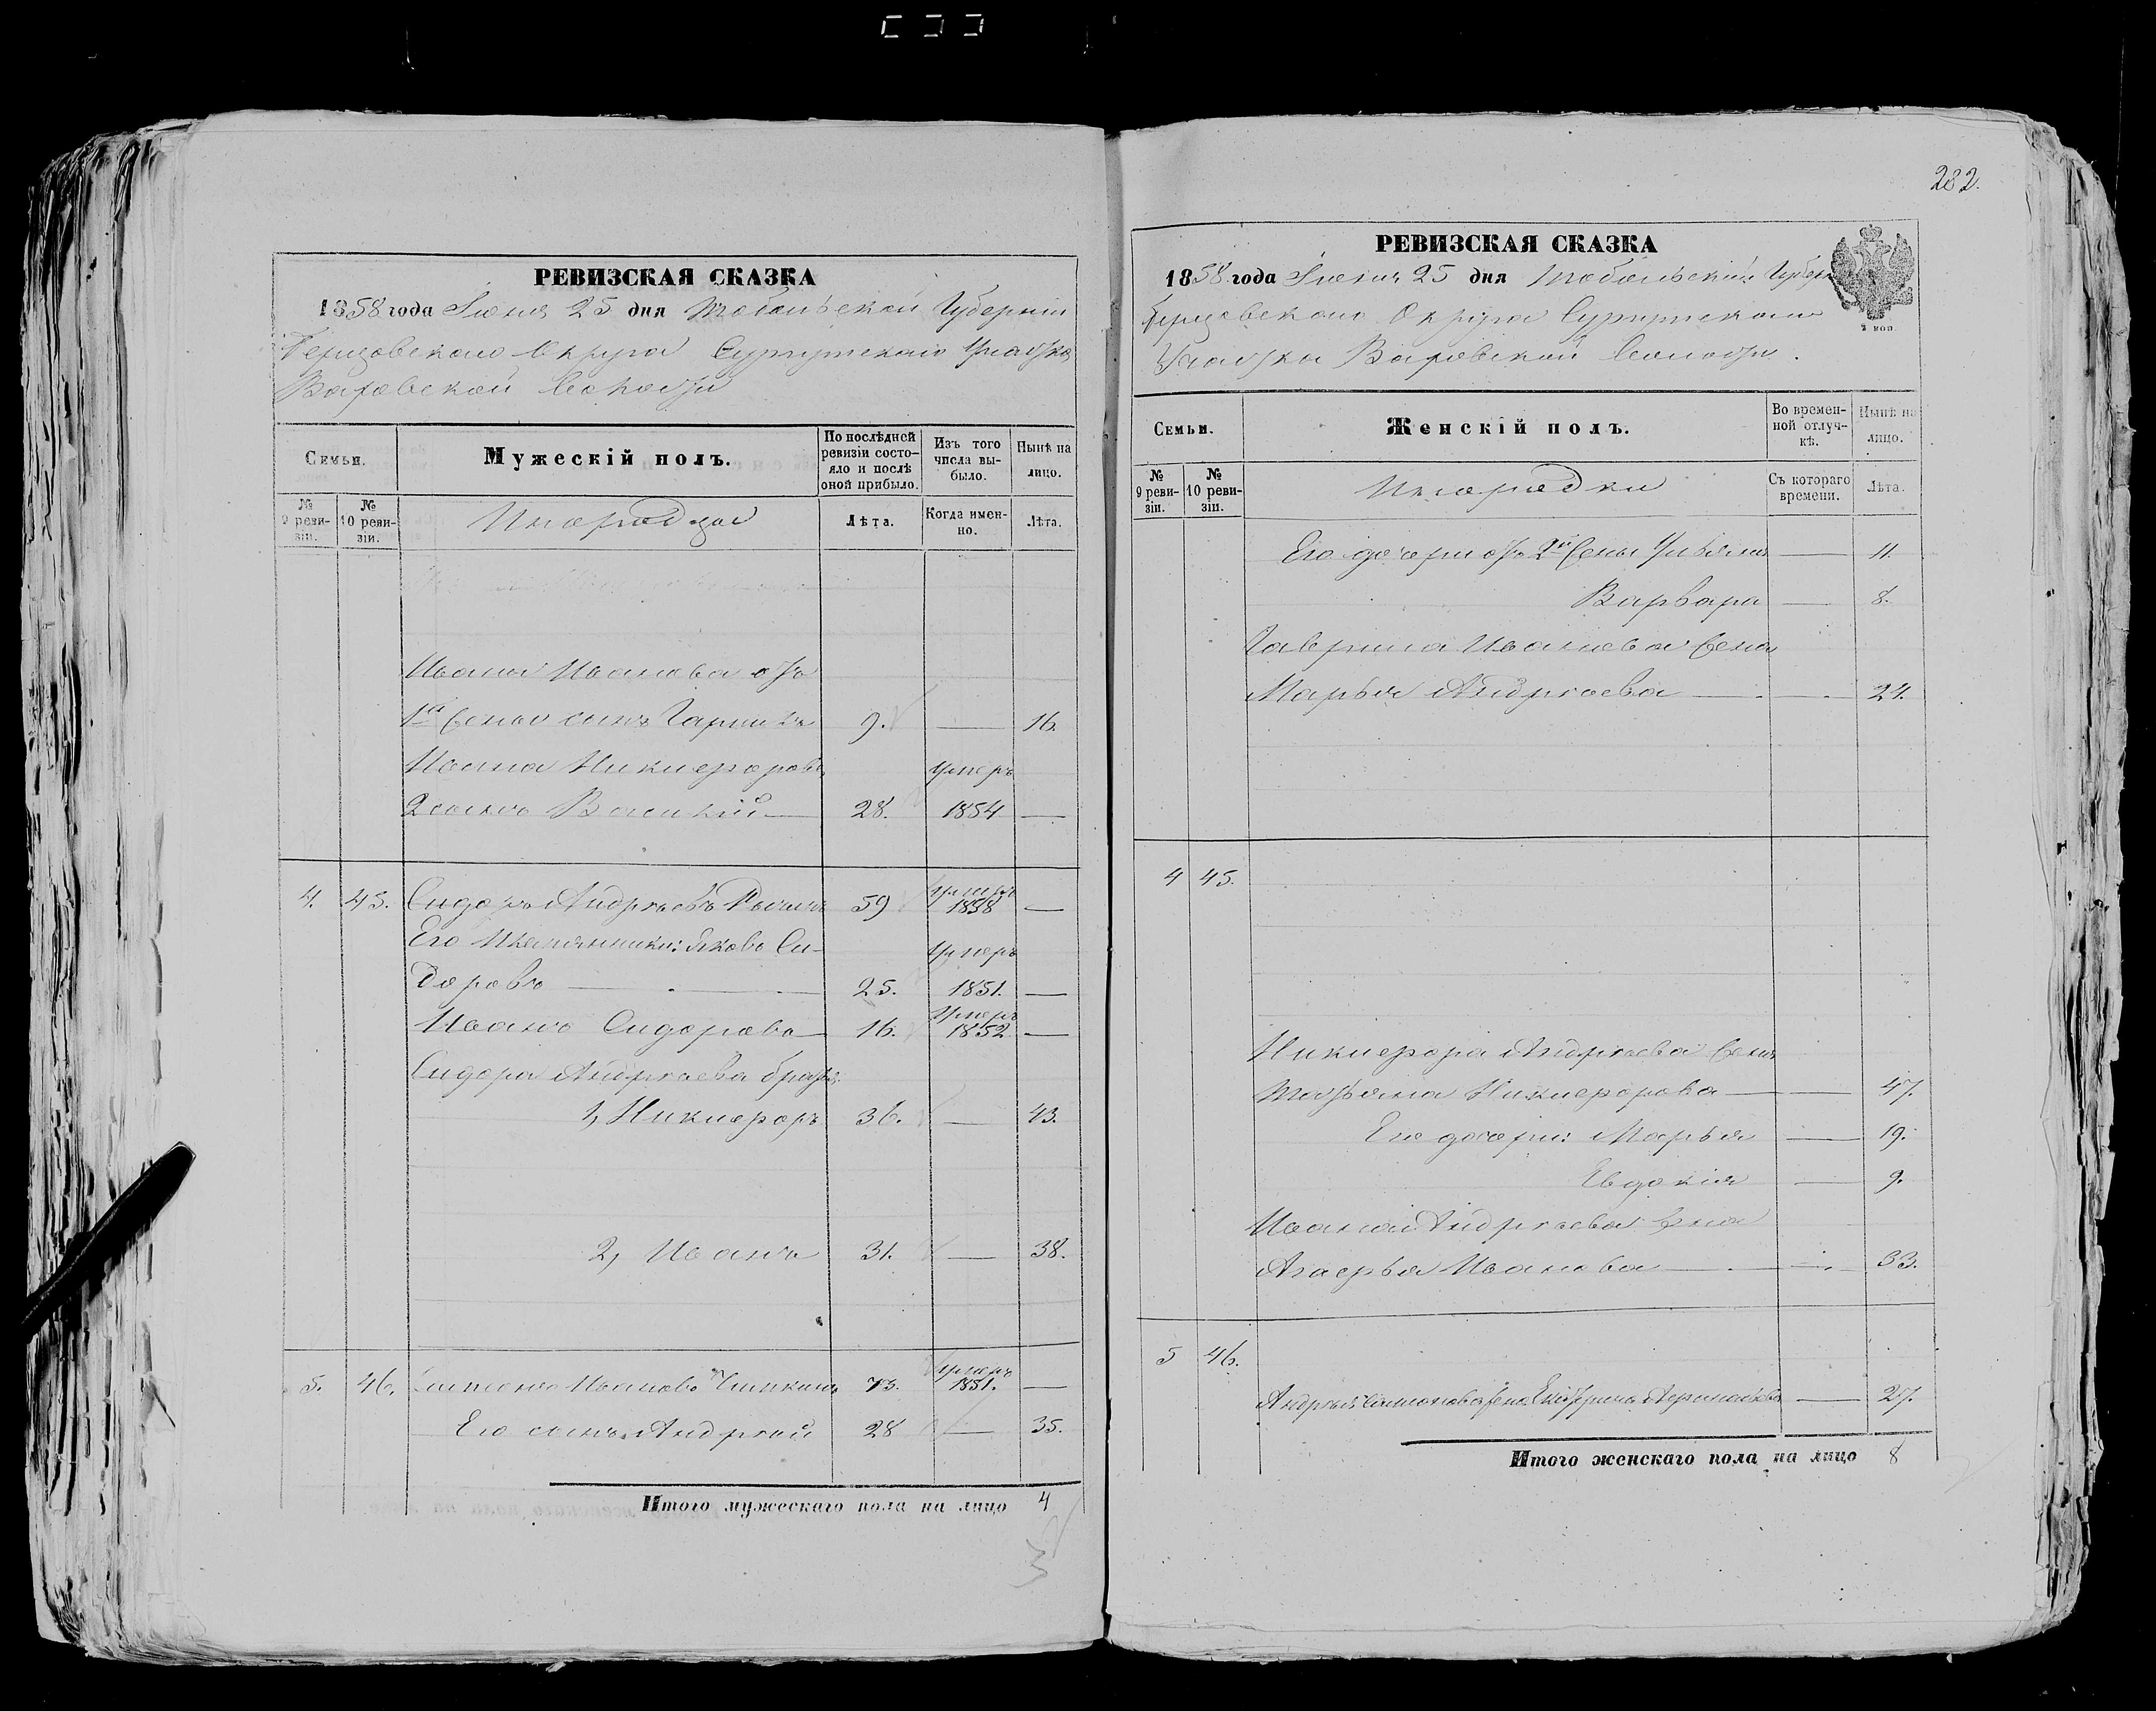 282.
РЕВИЗСКАЯ СКАЗКА
1858 года Июня 25 дня Тобольской Губерніи
Березовского Округа Сургутского Участка
Ваховской Волости
Семьи.
Мужескій полъ.
По послѣдней ревизіи состояло и послѣ оной прибыло.
Изъ того числа выбыло.
Нынѣ на лицо.
№ 9 ревизіи.
№ 10 ревизіи.
Инородцы
Лѣта.
Когда именно.
Лѣта.
Ивана Иванова отъ
1й жены сынъ 9. — 16.
Ивана Никифорова умеръ
2 сынъ Василій — 28. 1854 —
4. 45. Сидоръ Андреевъ 59 умеръ 1858 —
Его племянники: Яковъ Си- умеръ
доровъ — 25. 1851. —
Иванъ Сидоровъ 16. умеръ 1852 —
Сидора Андреева братья
1, Никифоръ 36. — 43.
2, Иванъ 31. — 38.
5. 46. Самсонъ Ивановъ 73. умеръ 1851. —
Его сынъ Андрей 28 — 35.
Итого мужескаго пола на лицо 4
РЕВИЗСКАЯ СКАЗКА
1858 года Июня 25 дня Тобольскій Губерн
Березовского Округа Сургутского
Участка Ваховской Волости.
2 коп
Семьи.
Женскій полъ.
Во временной отлучкѣ.
Нынѣ на лицо.
№ 9 ревизіи.
№ 10 ревизіи.
Инородки
Съ котораго времени.
Лѣта.
Его дочери отъ 2й жены Ульяна — 11.
Варвара — 8.
Гаврила Иванова жена
Марья Андреева — 24.
4 45.
Никифора Андреева жена
Татьяна Никифорова — 47.
Его дочери: Марья — 19.
Евдокія — 9.
Ивана Андреева жена
Агафья Иванова — 33.
5 46.
Андрея Самсонова жена Екатерина — 27.
Итого женскаго пола на лицо 8